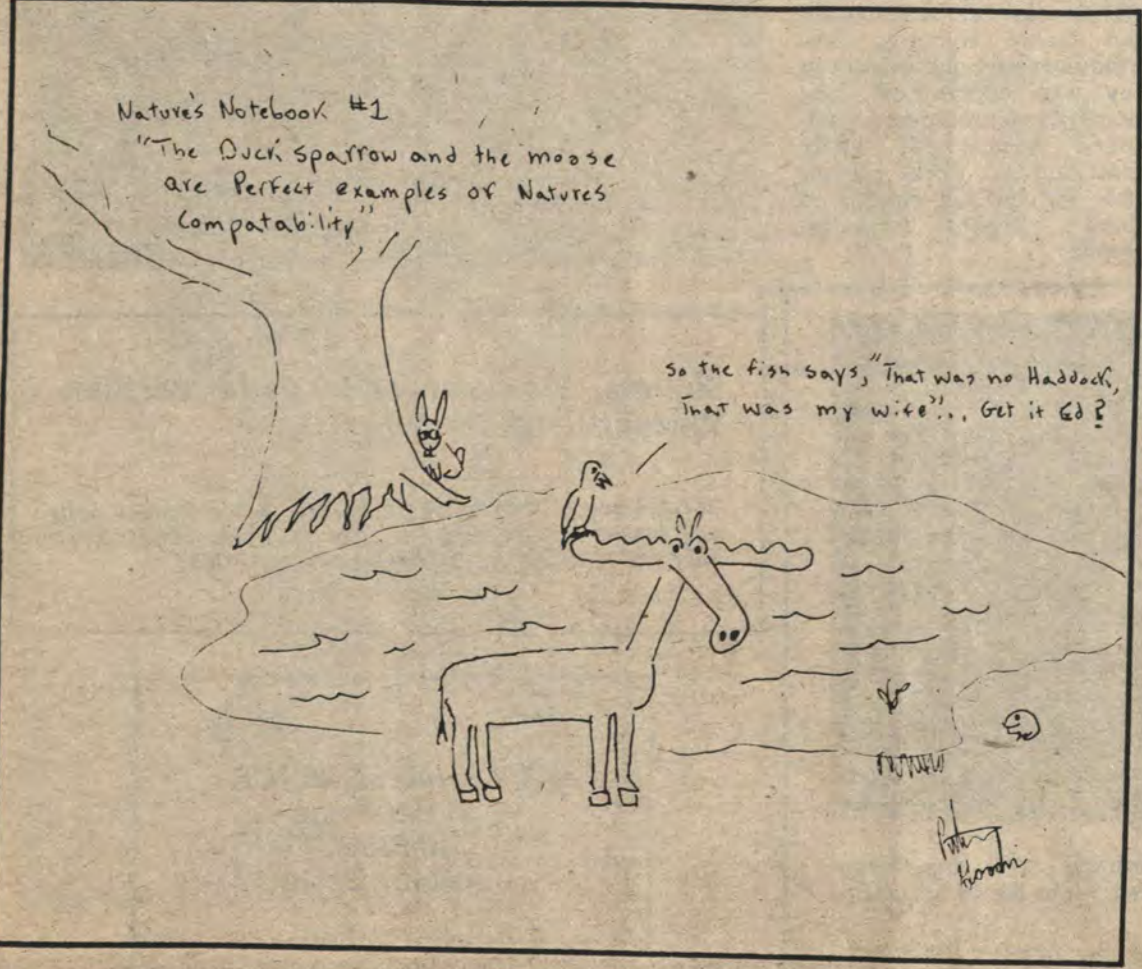 Nature's Notebook #1
"The Duck sparrow and the moose
are Perfect examples of Natures
Compatability"
So the fish says, "That was no Haddock,
That was my wife"... Get it Ed?